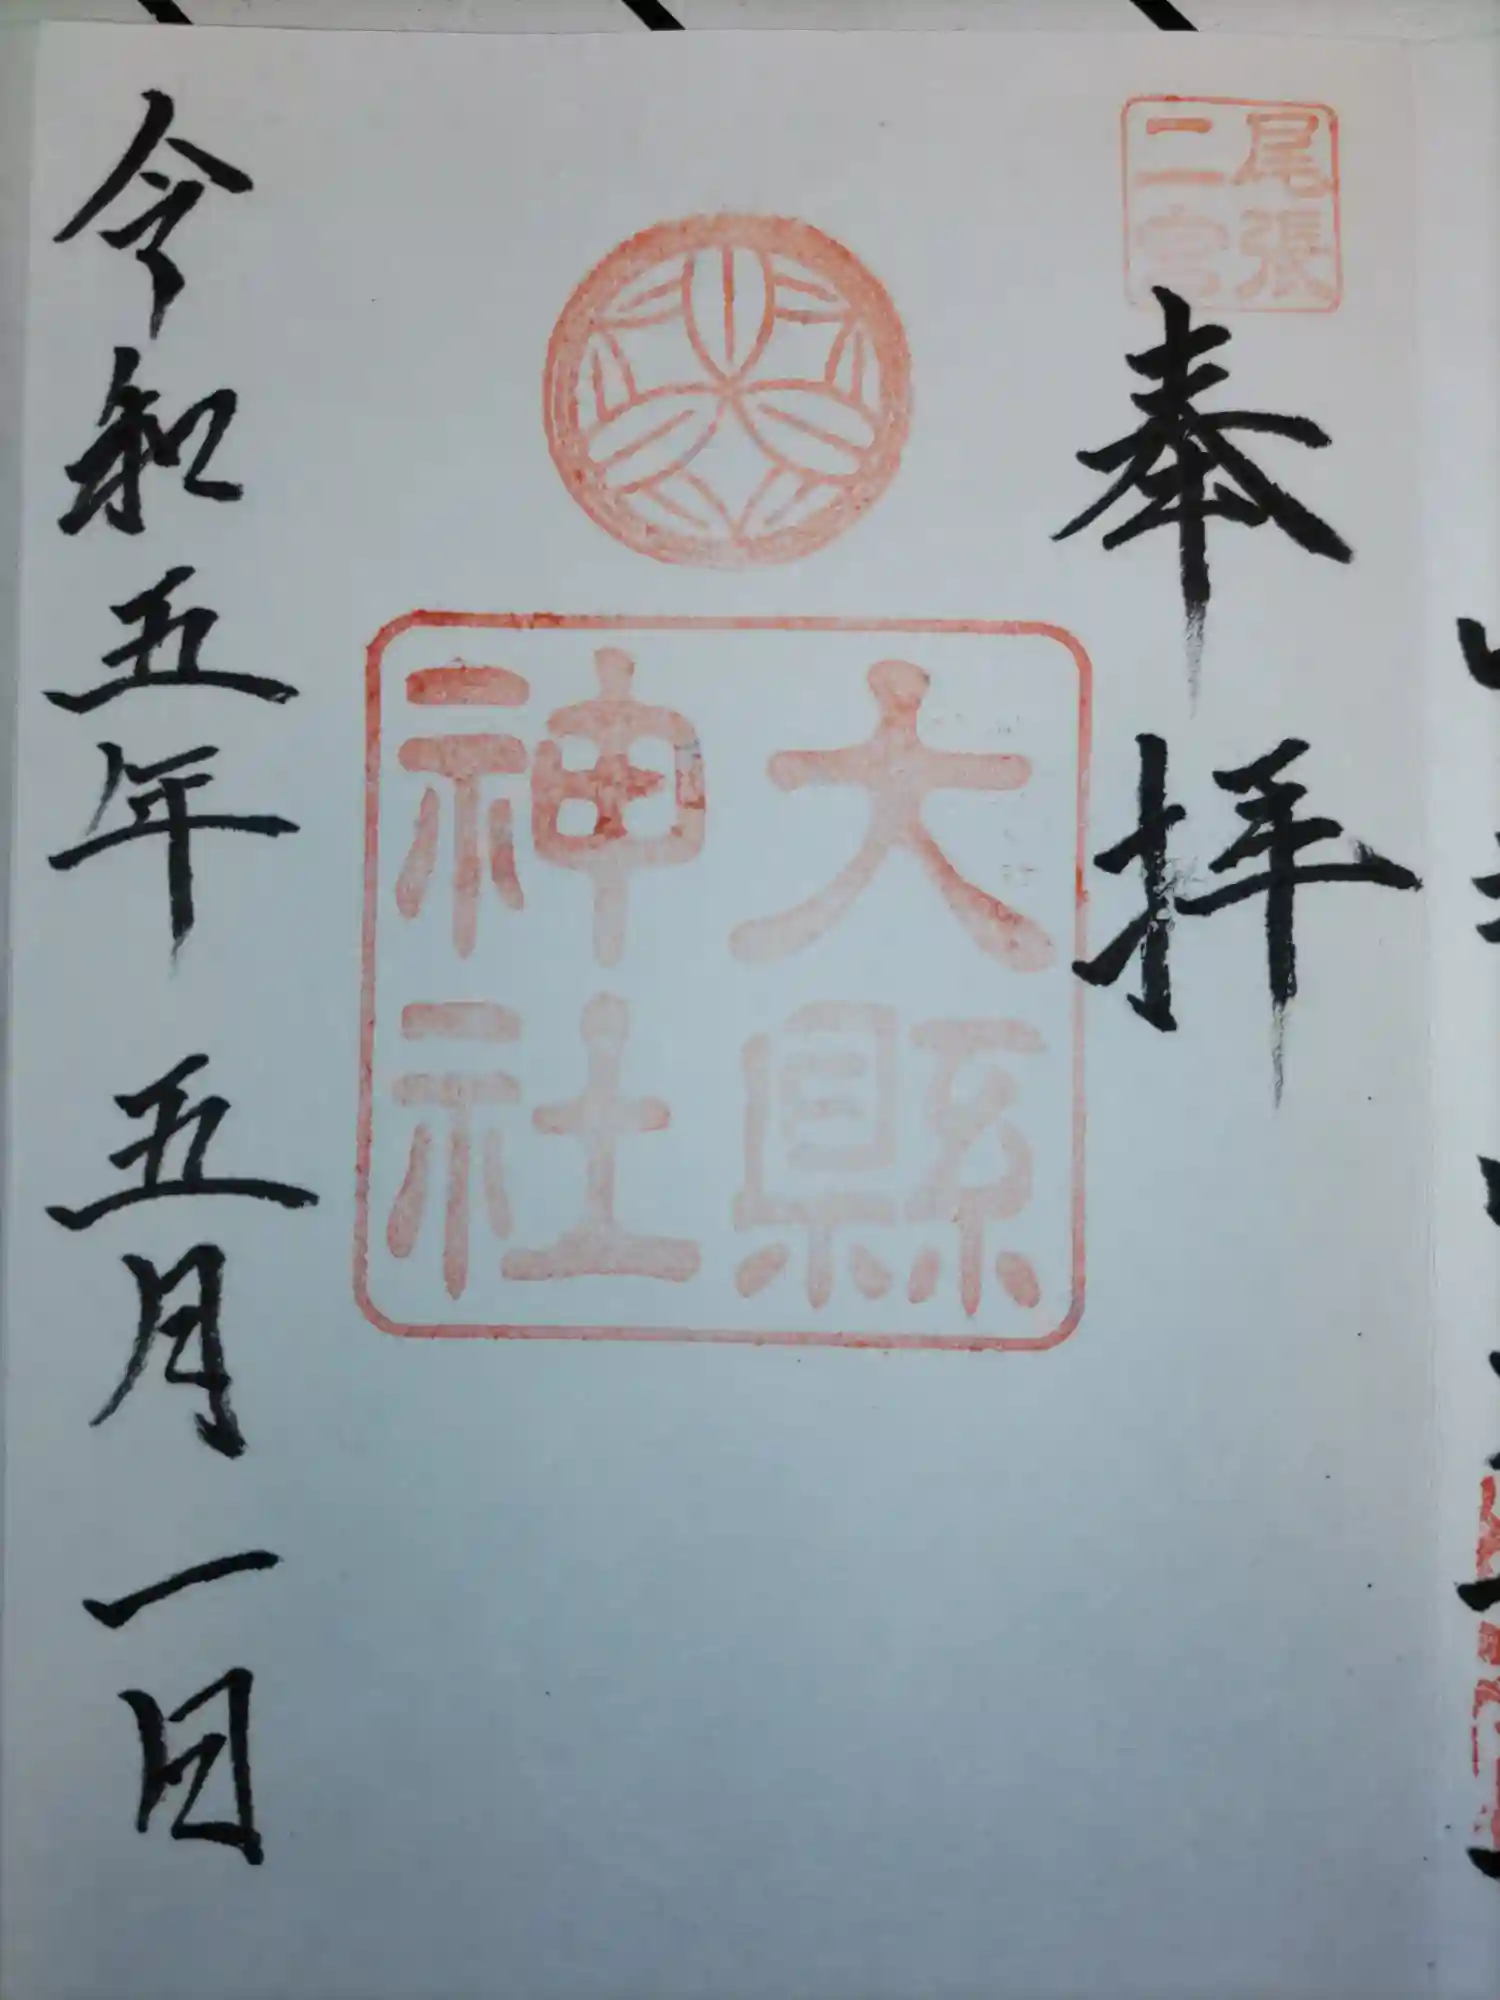 尾張
二宮
奉拝
大縣
神社
令和五年 五月一日